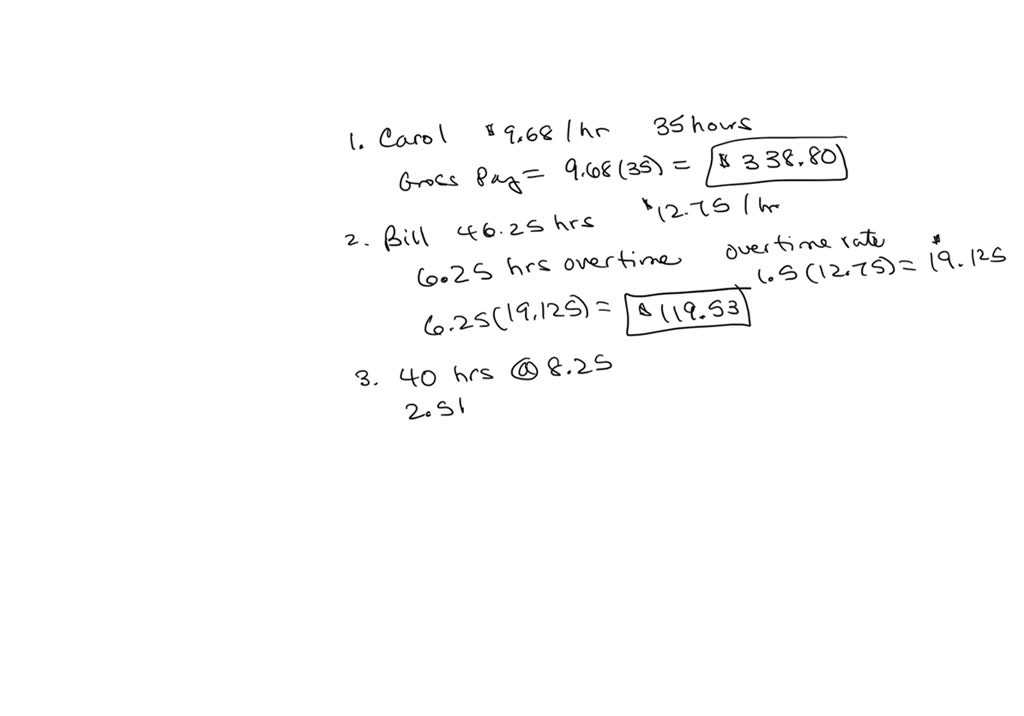 1. Carol $9.68 / hr 35 hours
Gross Pay = 9.68 (35) = $338.80
2. Bill 46.25 hrs $12.75 / hr
6.25 hrs overtime overtime rate
1.5 (12.75) = $19.125
6.25 (19.125) = $119.53
3. 40 hrs @ 8.25
2.51